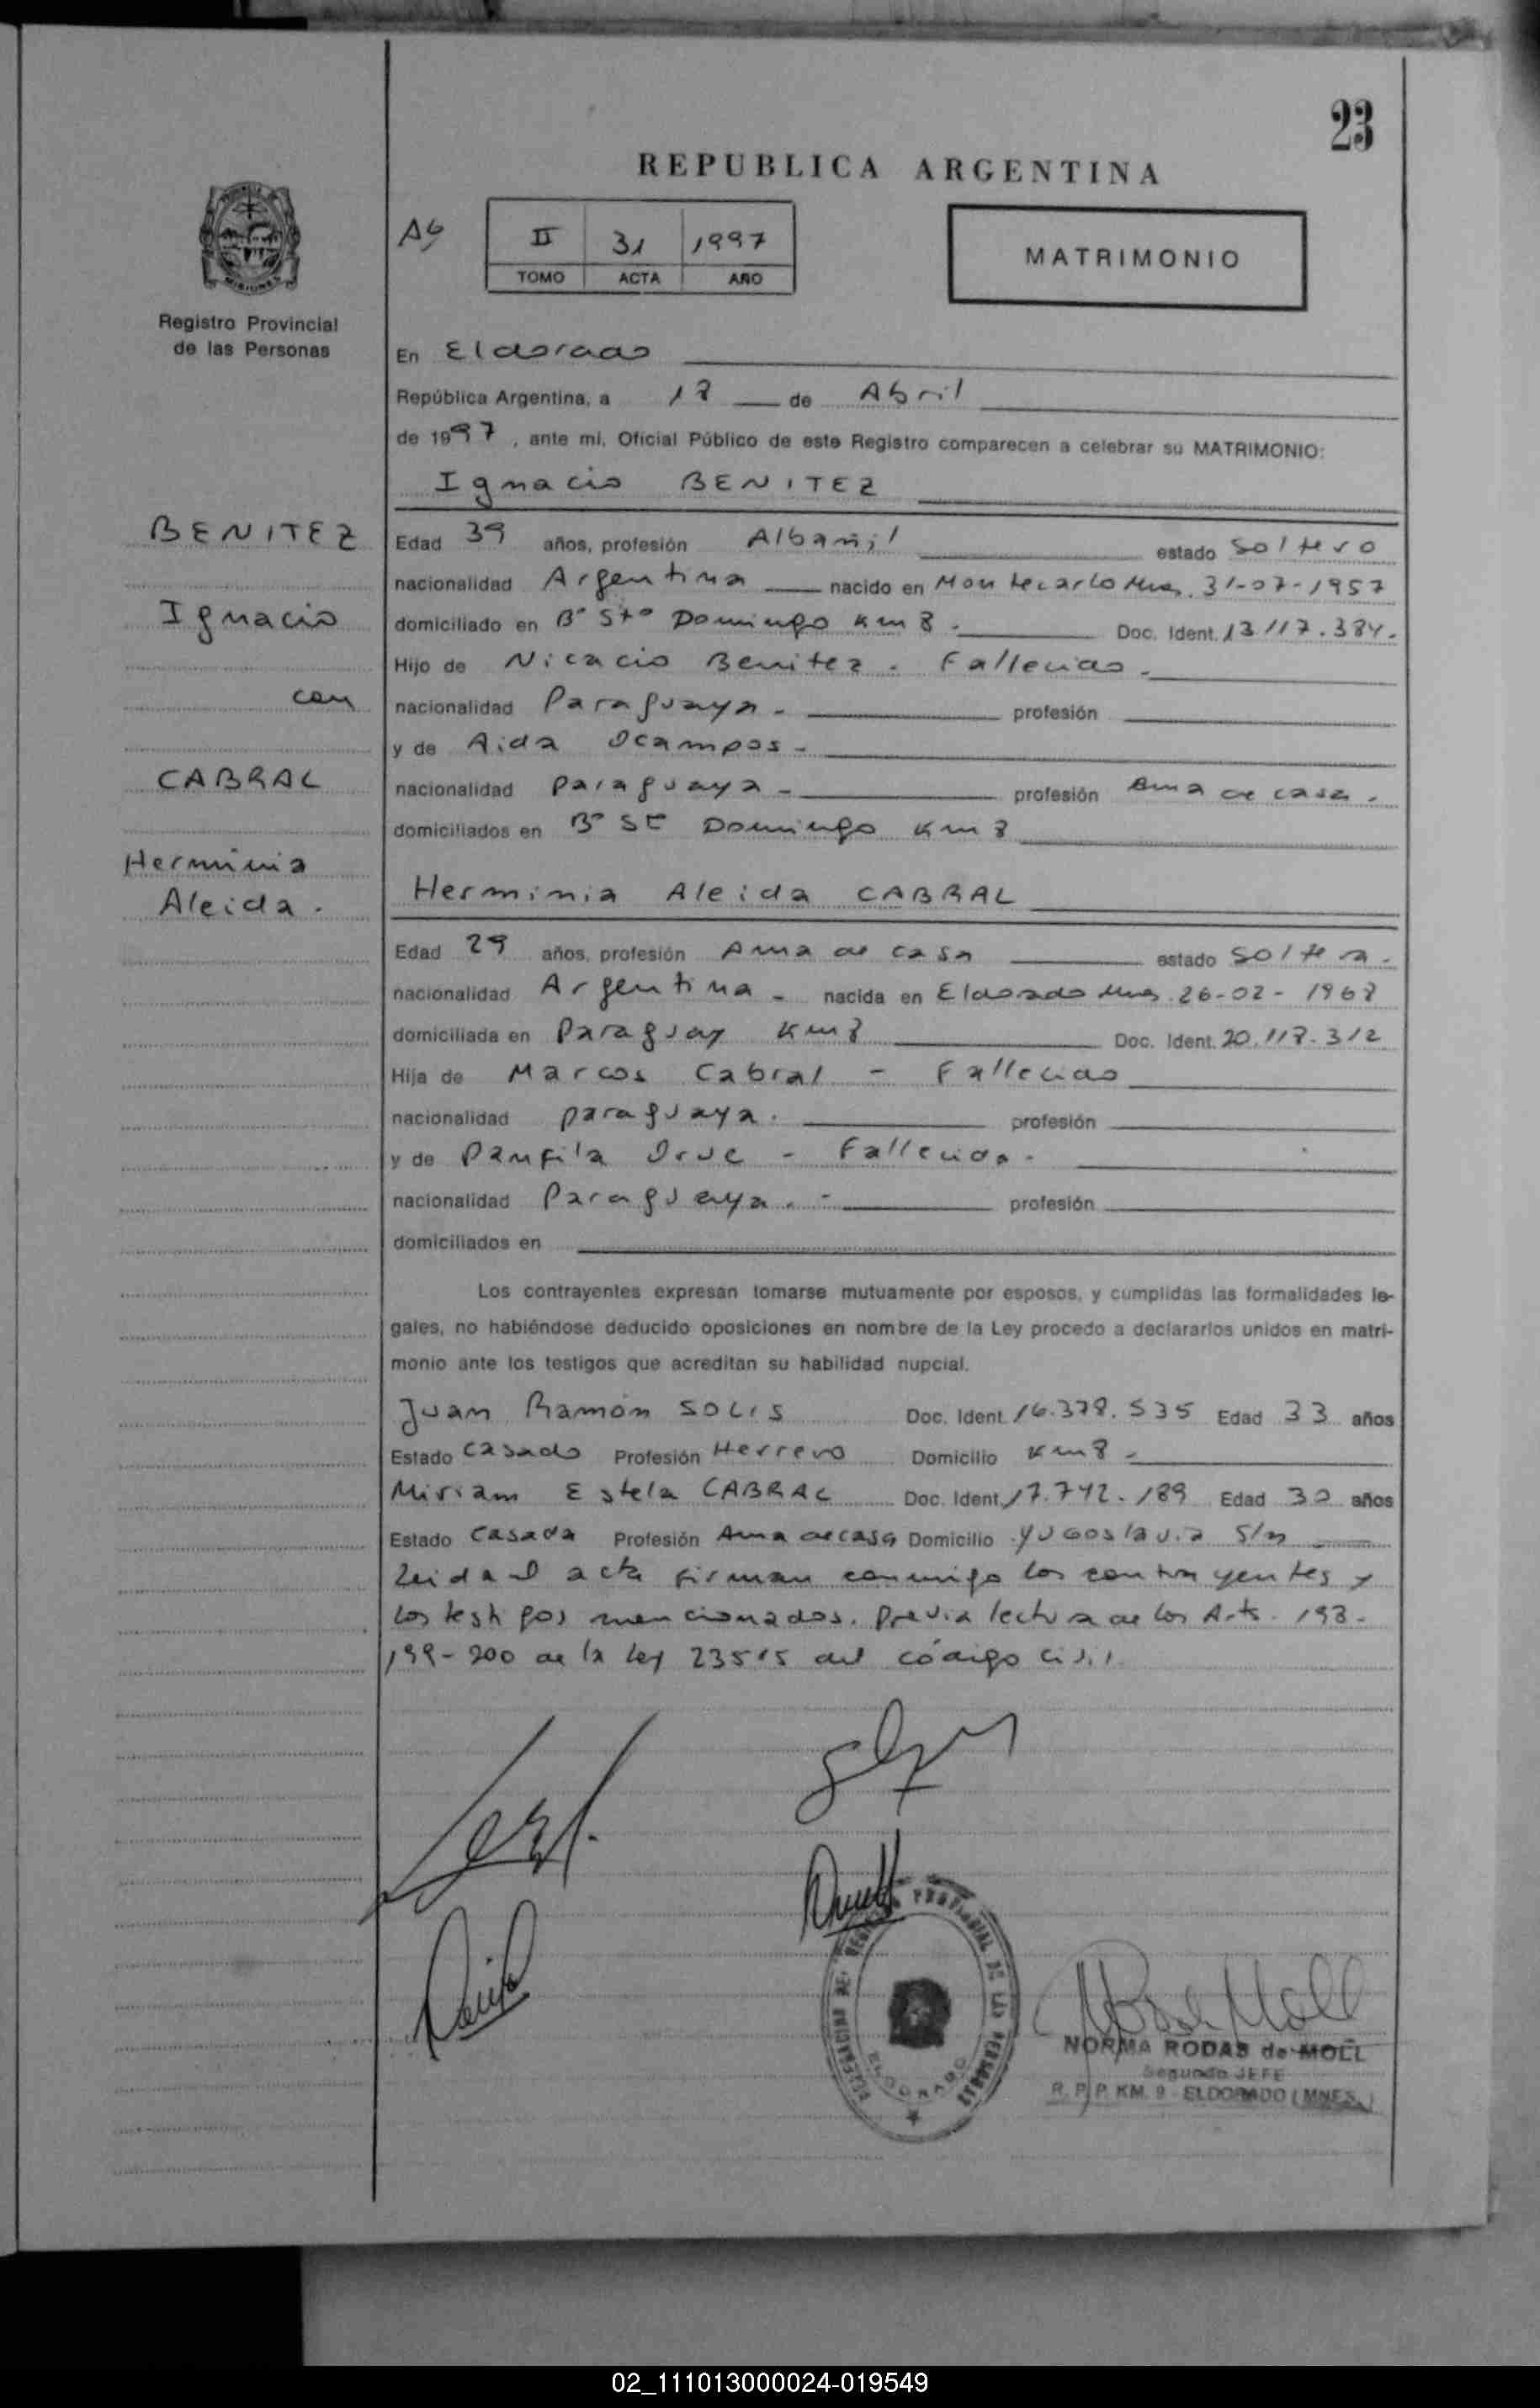 23
REPUBLICA ARGENTINA
II 31 1997
TOMO ACTA AÑO
MATRIMONIO
Registro Provincial
de las Personas
En Eldorado
República Argentina, a 18 de Abril
de 1997, ante mí, Oficial Público de este Registro comparecen a celebrar su MATRIMONIO:
Ignacio BENITEZ
BENITEZ
Ignacio
con
CABRAL
Herminia
Aleida.
Edad 39 años, profesión Albañil estado Soltero
nacionalidad Argentina nacido en Montecarlo Mnes. 31-07-1957
domiciliado en B° Sto Domingo Km 8. Doc. Ident. 13.117.384.
Hijo de Nicacio Benitez. Fallecido.
nacionalidad Paraguaya. profesión
y de Aida Ocampos.
nacionalidad paraguaya. profesión Ama de casa.
domiciliados en B° St Domingo Km 8
Herminia Aleida CABRAL
Edad 29 años, profesión Ama de casa estado Soltera.
nacionalidad Argentina. nacida en Eldorado Mnes. 26-02-1968
domiciliada en Paraguay Km 8 Doc. Ident. 20.118.312
Hija de Marcos Cabral - Fallecido
nacionalidad paraguaya. profesión
y de Panfila Orue - Fallecida.
nacionalidad Paraguaya. profesión
domiciliados en
Los contrayentes expresan tomarse mutuamente por esposos, y cumplidas las formalidades le-
gales, no habiéndose deducido oposiciones en nombre de la Ley procedo a declararlos unidos en matri-
monio ante los testigos que acreditan su habilidad nupcial.
Juan Ramón SOLIS Doc. Ident. 16.378.535 Edad 33 años
Estado Casado Profesión Herrero Domicilio Km 8.
Miriam Estela CABRAL Doc. Ident. 17.742.189 Edad 30 años
Estado Casada Profesión Ama de casa Domicilio Yugoslavia S/n
Leida el acta firman conmigo los contrayentes y
los testigos mencionados. Previa lectura de los Arts. 198-
199-200 de la ley 23515 del código civil.
NORMA RODAS de MOLL
Segundo JEFE
R. P. P. KM. 9 - ELDORADO (MNES.)
ELDORADO
02_111013000024-019549